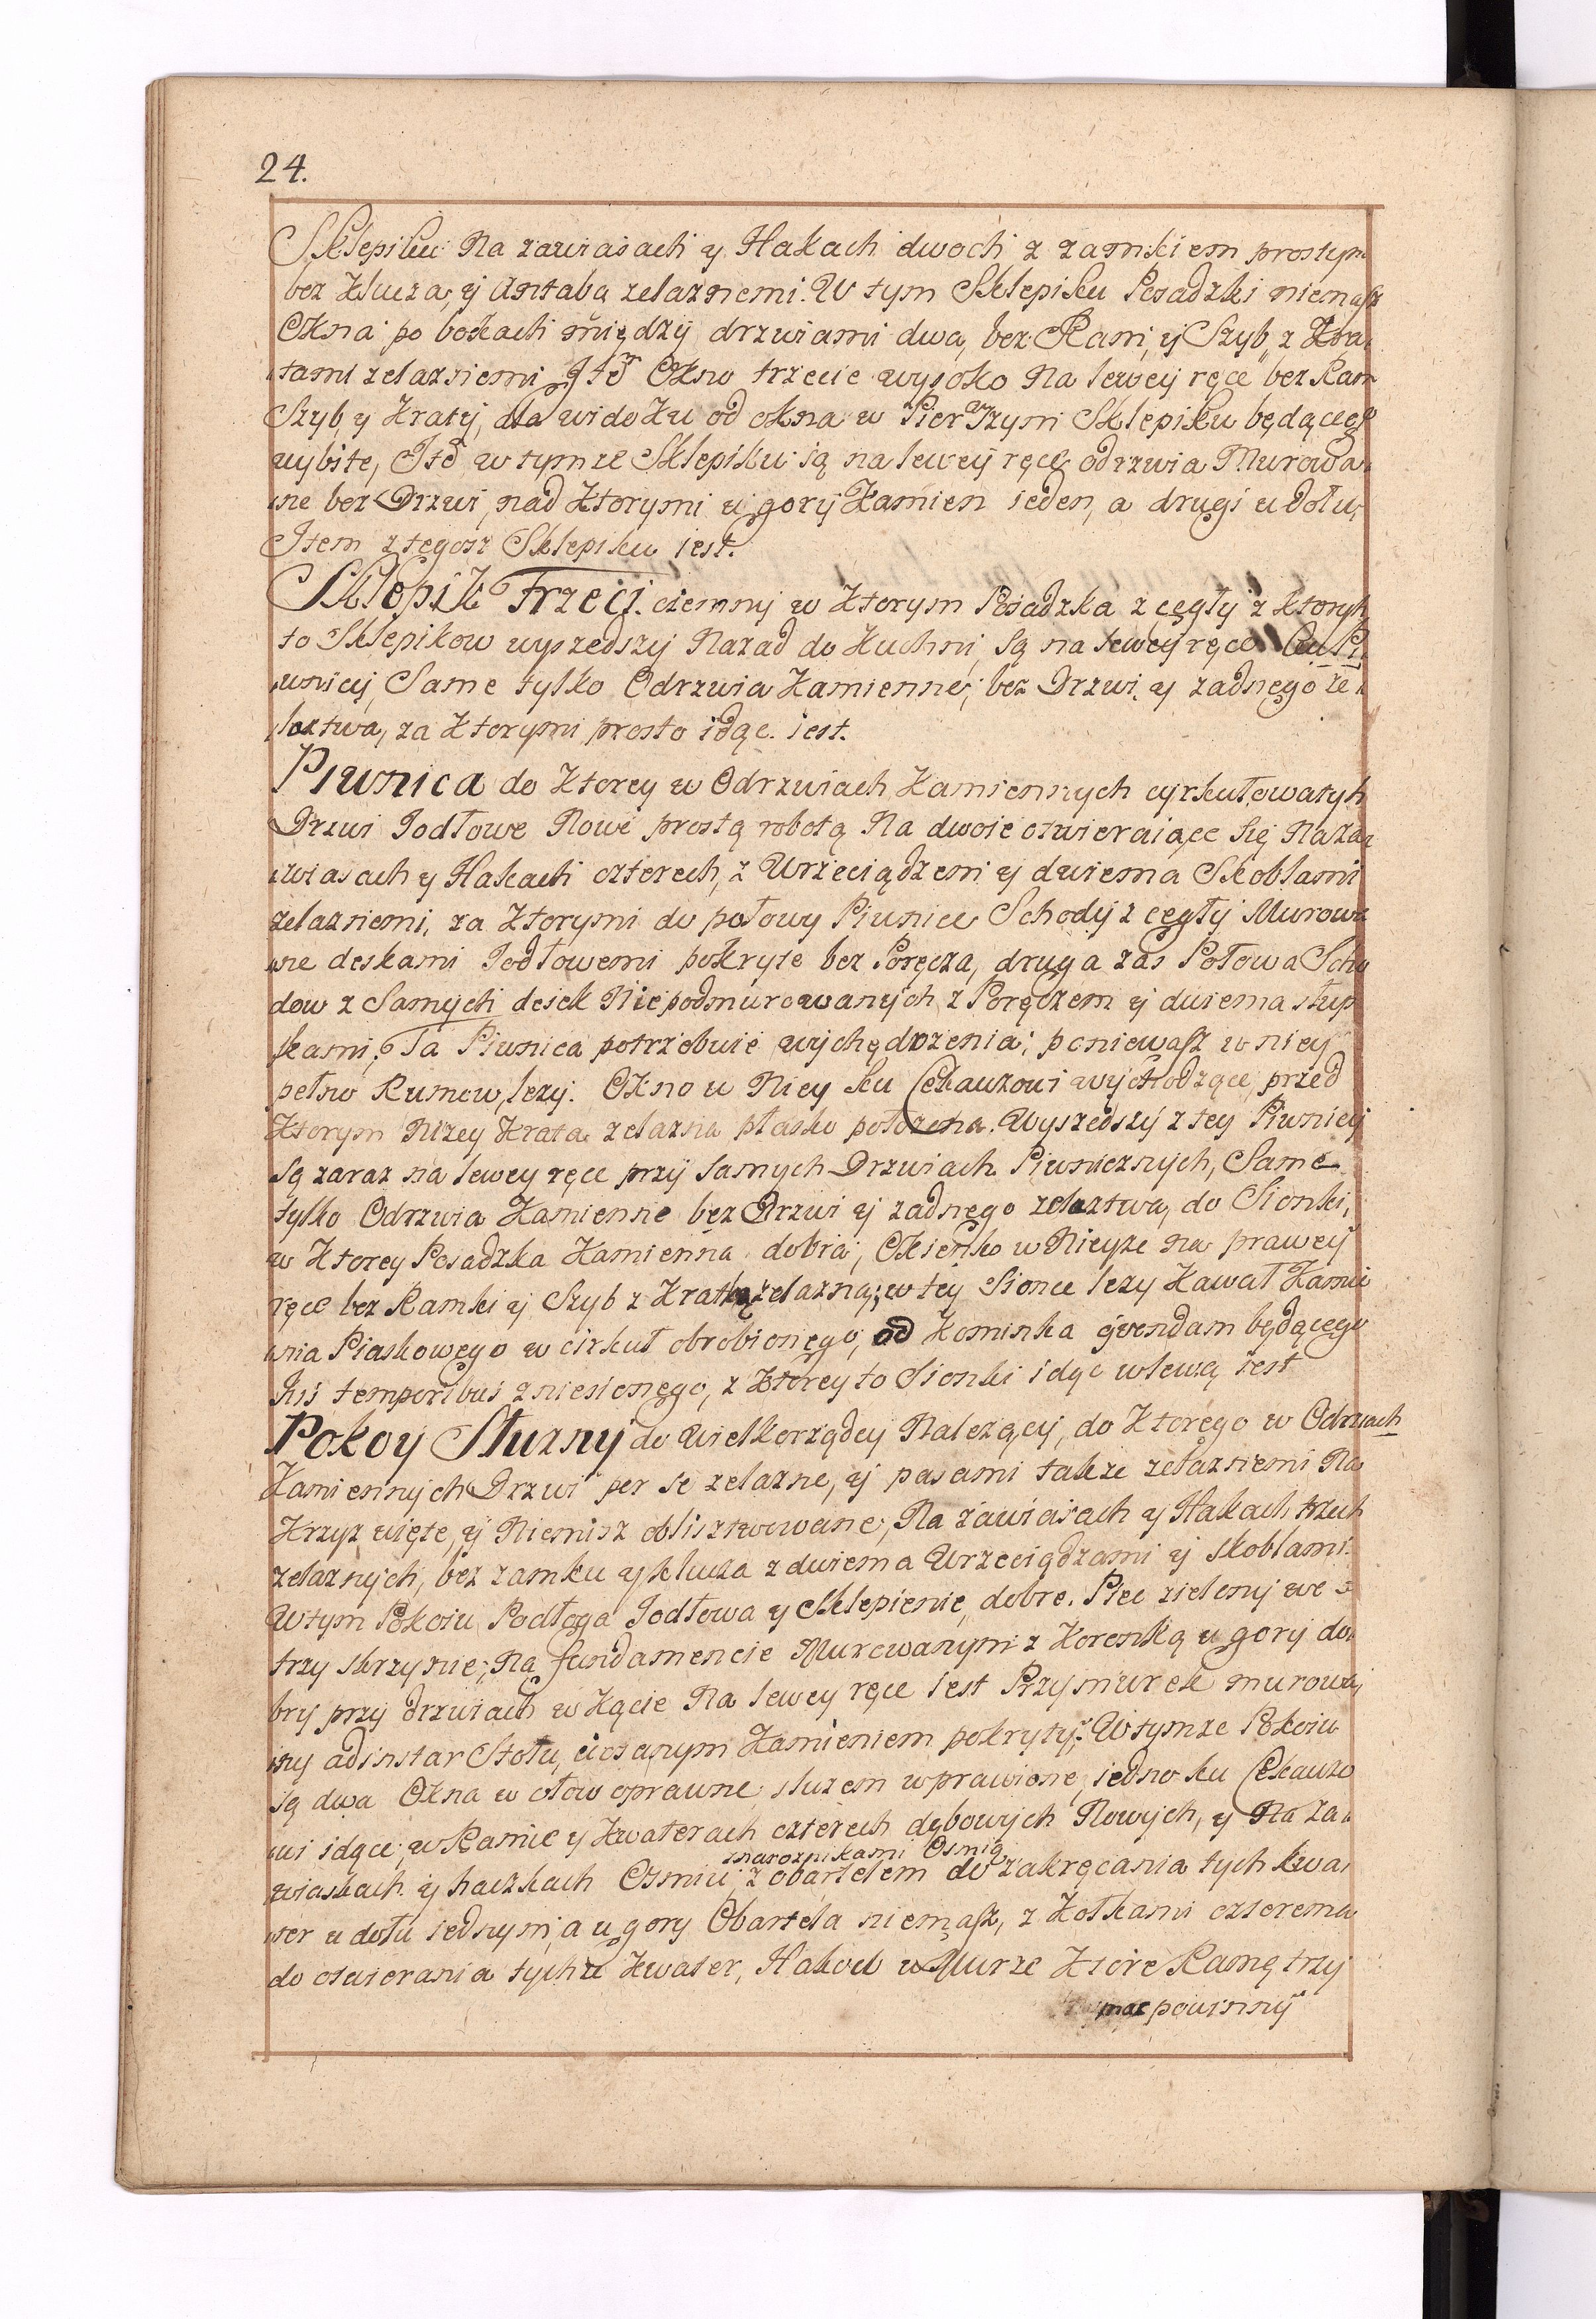 24.
Sklepiku Na zawiasach y Hakach dwoch z zamkiem prostym
bez Klucza, y Antabą zelaznemi. W tym Sklepiku Posadzki niemasz
Okna po bokach między drzwiami dwa, bez Ram, y Szyb, z Kra„
„tami zelaznemi Itẽ Okno trzecie wysoko Na lewey ręce bez Ram
Szyb, y Kraty, dla widoku od okna w Pierwszym Sklepiku będącego
wybite, Itẽ w tymze Sklepiku są na lewey ręce odrzwia Murowa„
„ne bez Drzwi, nad Ktorymi u gory Kamien ieden, a drugi u dołu,
Item z tegosz Sklepiku iest.
Sklepik Trzeci. ciemny w Ktorym Posadzka z cegły z ktorych
to Sklepikow wyszedszy Nazad do Kuchni, Są na lewey ręce Ku Pi„
„wnicy, Same tylko Odrzwia Kamienne, bez Drzwi, y zadnego ze„
„laztwa, za Ktorymi prosto idąc iest.
Piwnica do Ktorey w Odrzwiach Kamiennych cyrkułowatych
Drzwi Jodłowe Nowe prostą robotą Na dwoie otwieraiące się Na za„
„wiasach y Hakach czterech, z Wrzeciądzem y dwiema Skoblami
zelaznemi, za Ktorymi do połowy Piwnice Schody z cegły Murowa
„ne deskami Jodłowemi pokryte bez Poręcza, druga zas Połowa Scho
dow z Samych desek Niepodmurowanych z Poręczem y dwiema słup
kami, Ta Piwnica potrzebuie wychędozenia; poniewasz w niey
pełno Rumow lezy. Okno w Niey ku Cekauzowi wychodzące, przed
Ktorym Nizey Krata zelazna płasko połozona. Wyszedszy z tey Piwnicy
Są zaraz na lewey ręce przy samych Drzwiach Piwnicznych, Same
tylko Odrzwia Kamienne bez Drzwi y zadnego zelaztwa, do Sionki,
w Ktorey Posadzka Kamienna dobra, Okienko w Nieyze na prawey
ręce bez Ramki y Szyb z Kratką zelazną; w tey Sionce lezy Kawał Kamie
„nia Piaskowego w cirkuł obrobionego, od Kominka qvondam będącego
his temporibus zniesionego, z Ktorey to Sionki idąc w lewą iest
Pokoy Stuzny do Wielkorządcy Nalezący, do Ktorego w Odrzwach
Kamiennych Drzwi per se zelazne, y pasami takze zelaznemi Na
Krzyz więte, y Niemisz oblisztwowane, Na zawiasach y Hakach trzech
zelaznych, bez zamku y klucza z dwiema Wrzeciądzami y skoblami.
W tym Pokoiu Podłoga Jodłowa y Sklepienie dobre. Piec zielony we
trzy skrzynie, Na fundamencie Murowanym z Koronką u gory do„
bry przy drzwiach w Kącie Na lewey ręce iest Przymurek murowa
„ny ad instar Stołu, ciosanym Kamieniem pokryty, W tymze Pokoiu
są dwa Okna w ołow oprawne, w prawione, iedno ku Cekauzo
„wi idące, w Ramie y Kwaterach czterech dębowych Nowych, y Na za„
naroznikami Osmią
wiaskach y haczkach Osmiu, z obartelem do zakręcania tych kwa„
„ter u dołu iednym, a u gory Obartela niemasz, z Kołkami czterema
do otwierania tychze Kwater, Hakow w Murze Ktore Ramę trzy
mac powinny